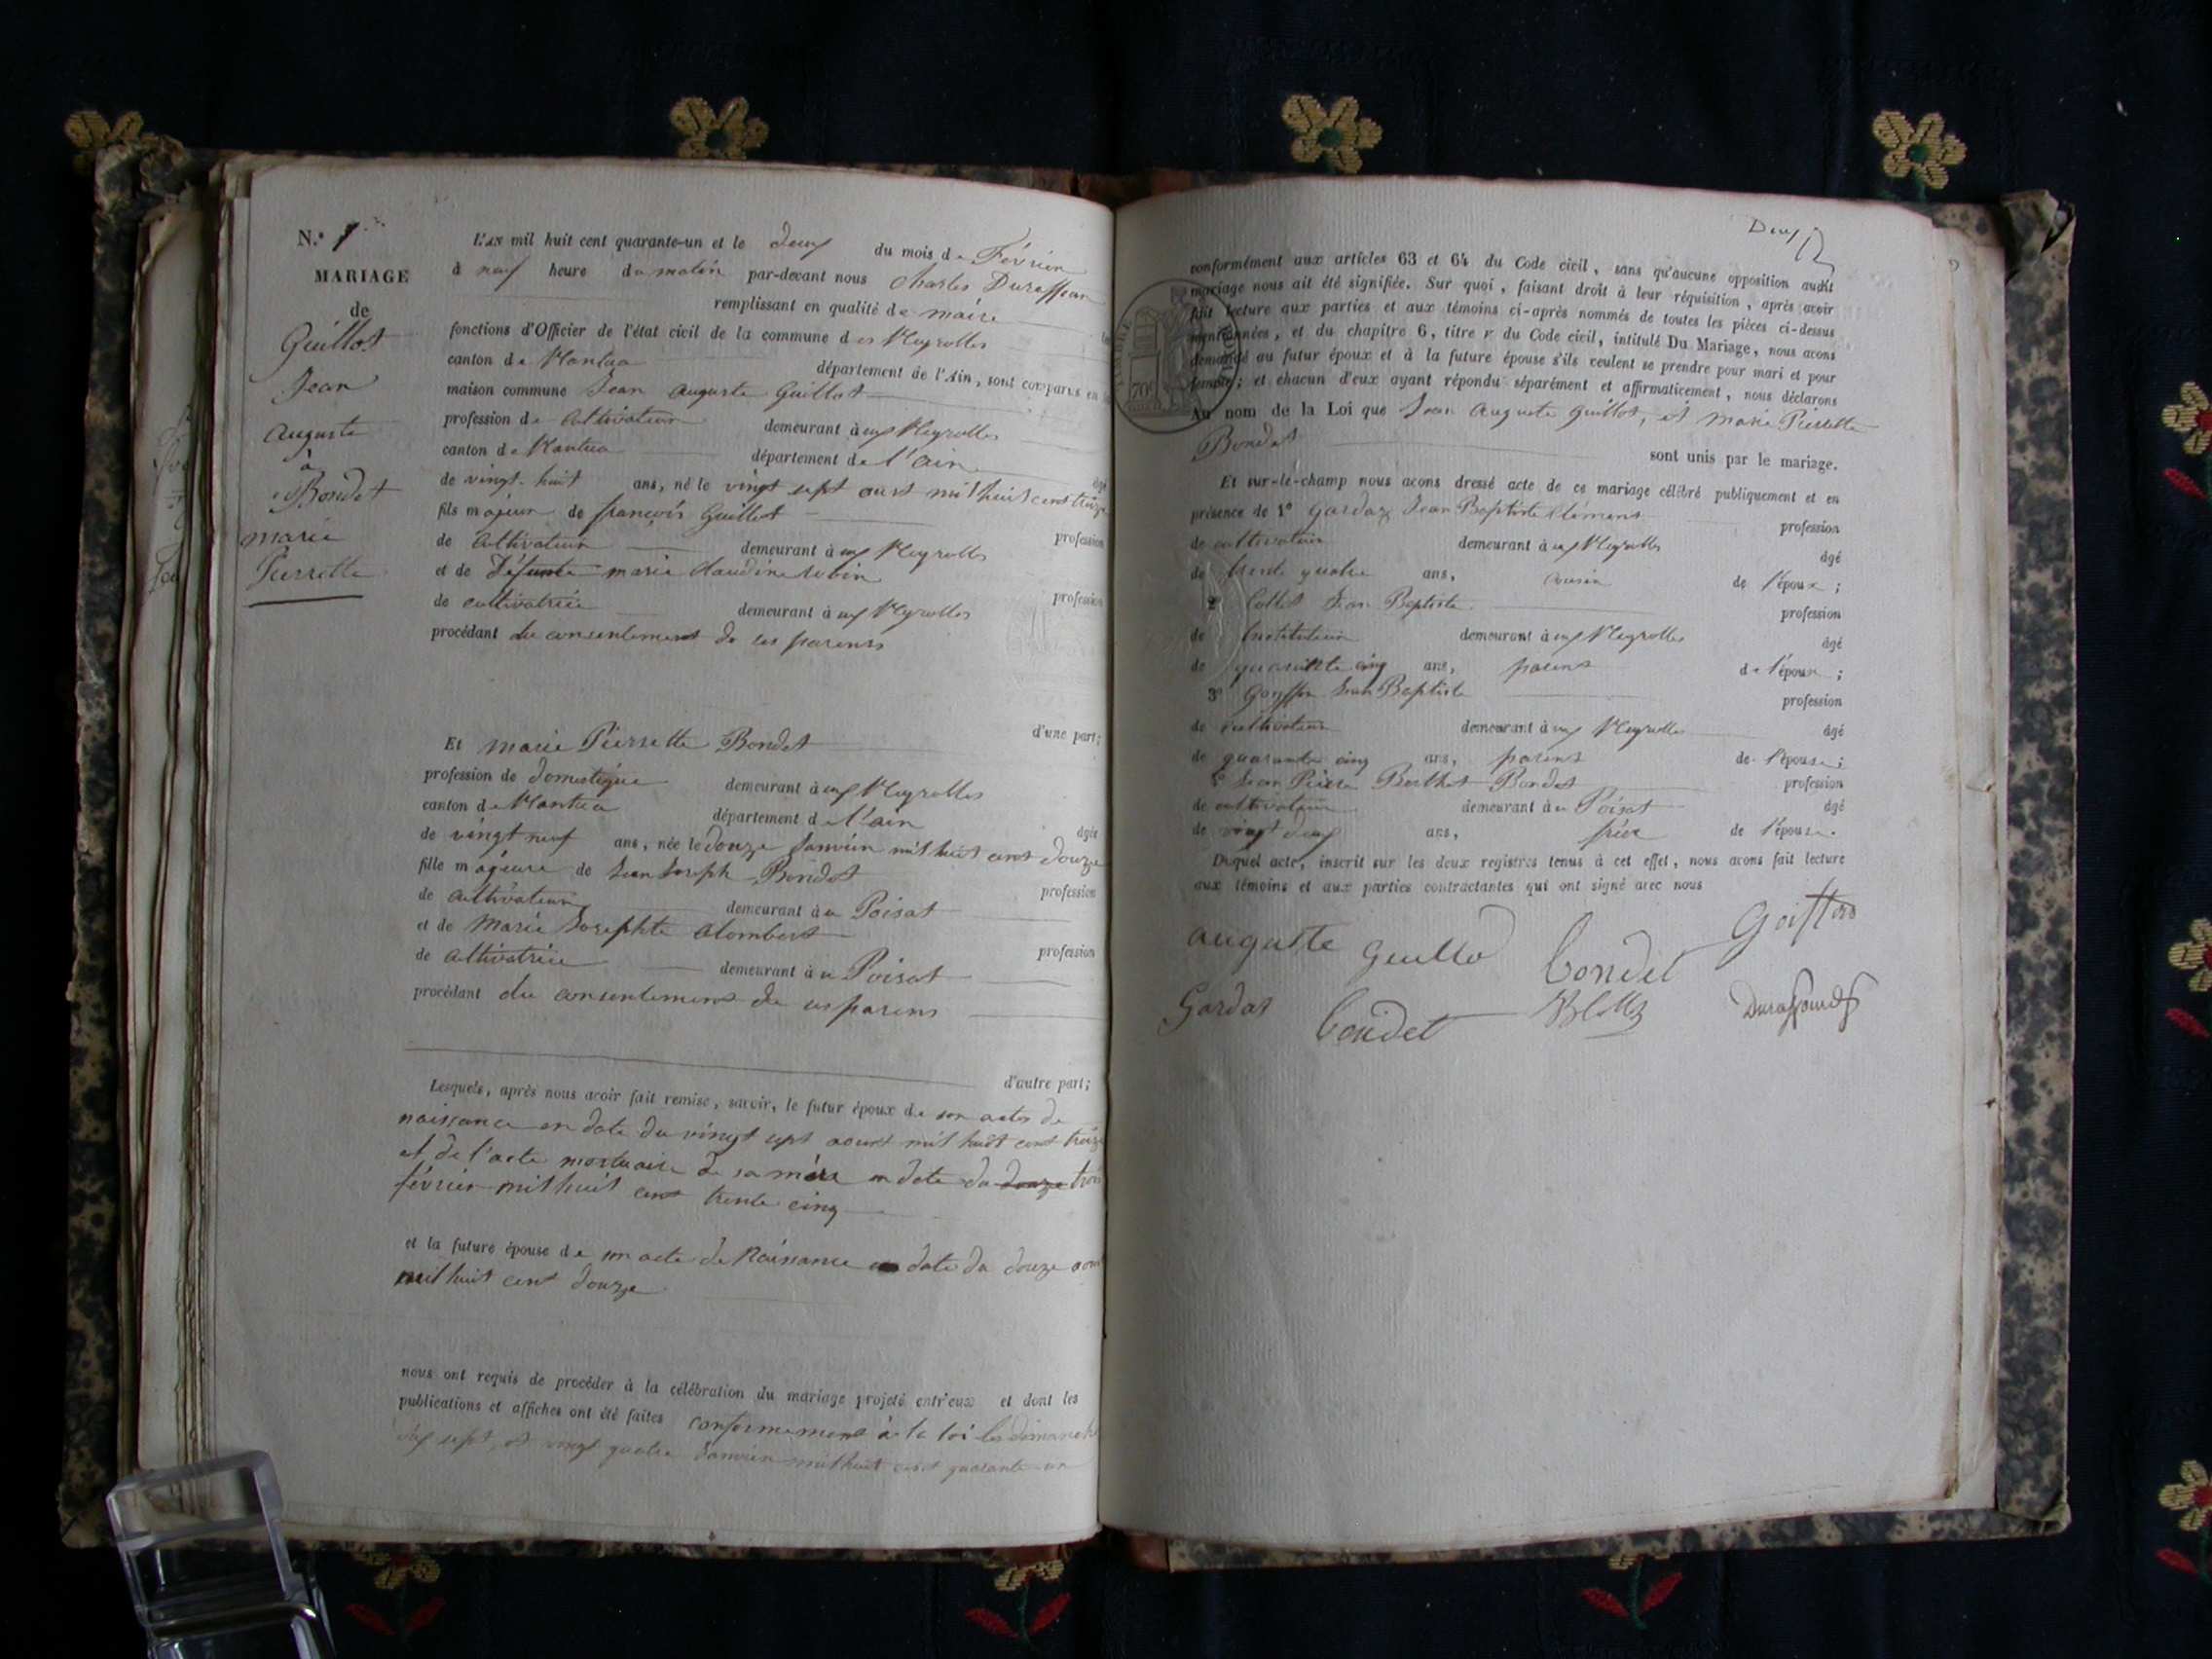 N.º 1
MARIAGE
de
Guillot
Jean
Auguste
à
Bondet
marie
Pierrette
L'an mil huit cent quarante-un et le deux du mois de Février
à neuf heure du matin par-devant nous Charles Duraffour
remplissant en qualité de maire
fonctions d'Officier de l'état civil de la commune des Neyrolles
canton de Nantua département de l'Ain, sont comparus en
maison commune Jean Auguste Guillot
profession de Cultivateur demeurant aux Neyrolles
canton de Nantua département de l'ain
de vingt-huit ans, né le vingt sept aout mil huit cent treize
fils majeur de françois Guillot profession
de Cultivateur demeurant aux Neyrolles
et de Défunte marie Claudine
de cultivatrice demeurant aux Neyrolles profession
procédant du consentement de ses parens
d'une part;
Et marie Pierrette Bondet
profession de domestique demeurant aux Neyrolles
canton de Nantua département de l'ain
de vingt neuf ans, née le douze Janvier mil huit cent douze agée
fille majeure de Jean Joseph Bondet profession
de Cultivateur demeurant à u Poisat
et de Marie Josephte alombert profession
de Cultivatrice demeurant à u Poisat
procédant du consentement de ses parens
d'autre part;
Lesquels, après nous avoir fait remise, savoir, le futur époux de son actes de
naissance en date du vingt sept aout mil huit cent treize
et de l'acte mortuaire de sa mère en date du douze trois
février mil huit cent trente cinq
et la future épouse de son acte de Naissance en date du douze
mil huit cent douze
nous ont requis de procéder à la célébration du mariage projeté entr'eux et dont les
publications et affiches ont été faites conformement à la loi les dimanche
dix sept, et vingt quatre Janvier mil huit cent quarante un
Deux
conformément aux articles 63 et 64 du Code civil, sans qu'aucune opposition audit
mariage nous ait été signifiée. Sur quoi, faisant droit à leur réquisition, après avoir
fait lecture aux parties et aux témoins ci-après nommés de toutes les pièces ci-dessus
mentionnées, et du chapitre 6, titre v du Code civil, intitulé Du Mariage, nous avons
demandé au futur époux et à la future épouse s'ils veulent se prendre pour mari et pour
femme; et chacun d'eux ayant répondu séparément et affirmativement, nous déclarons
Au nom de la Loi que Jean Auguste Guillot, et Marie Pierrette
Bondet sont unis par le mariage.
Et sur-le-champ nous avons dressé acte de ce mariage célébré publiquement et en
présence de 1º Gardaz Jean Baptiste Clément profession
de cultivateur demeurant aux Neyrolles âgé
de trente quatre ans, cousin de l'époux;
2º Collet Jean Baptiste profession
de Instituteur demeurant aux Neyrolles âgé
de quarante cinq ans, parent de l'époux;
3º Jean Baptiste profession
de cultivateur demeurant aux Neyrolles âgé
de quarante cinq ans, parent de l'épouse;
Jean Pierre Berthet Bondet profession
de cultivateur demeurant à u Poisat âgé
de vingt deux ans, frère de l'épouse.
Duquel acte, inscrit sur les deux registres tenus à cet effet, nous avons fait lecture
aux témoins et aux parties contractantes qui ont signé avec nous
auguste Guillo